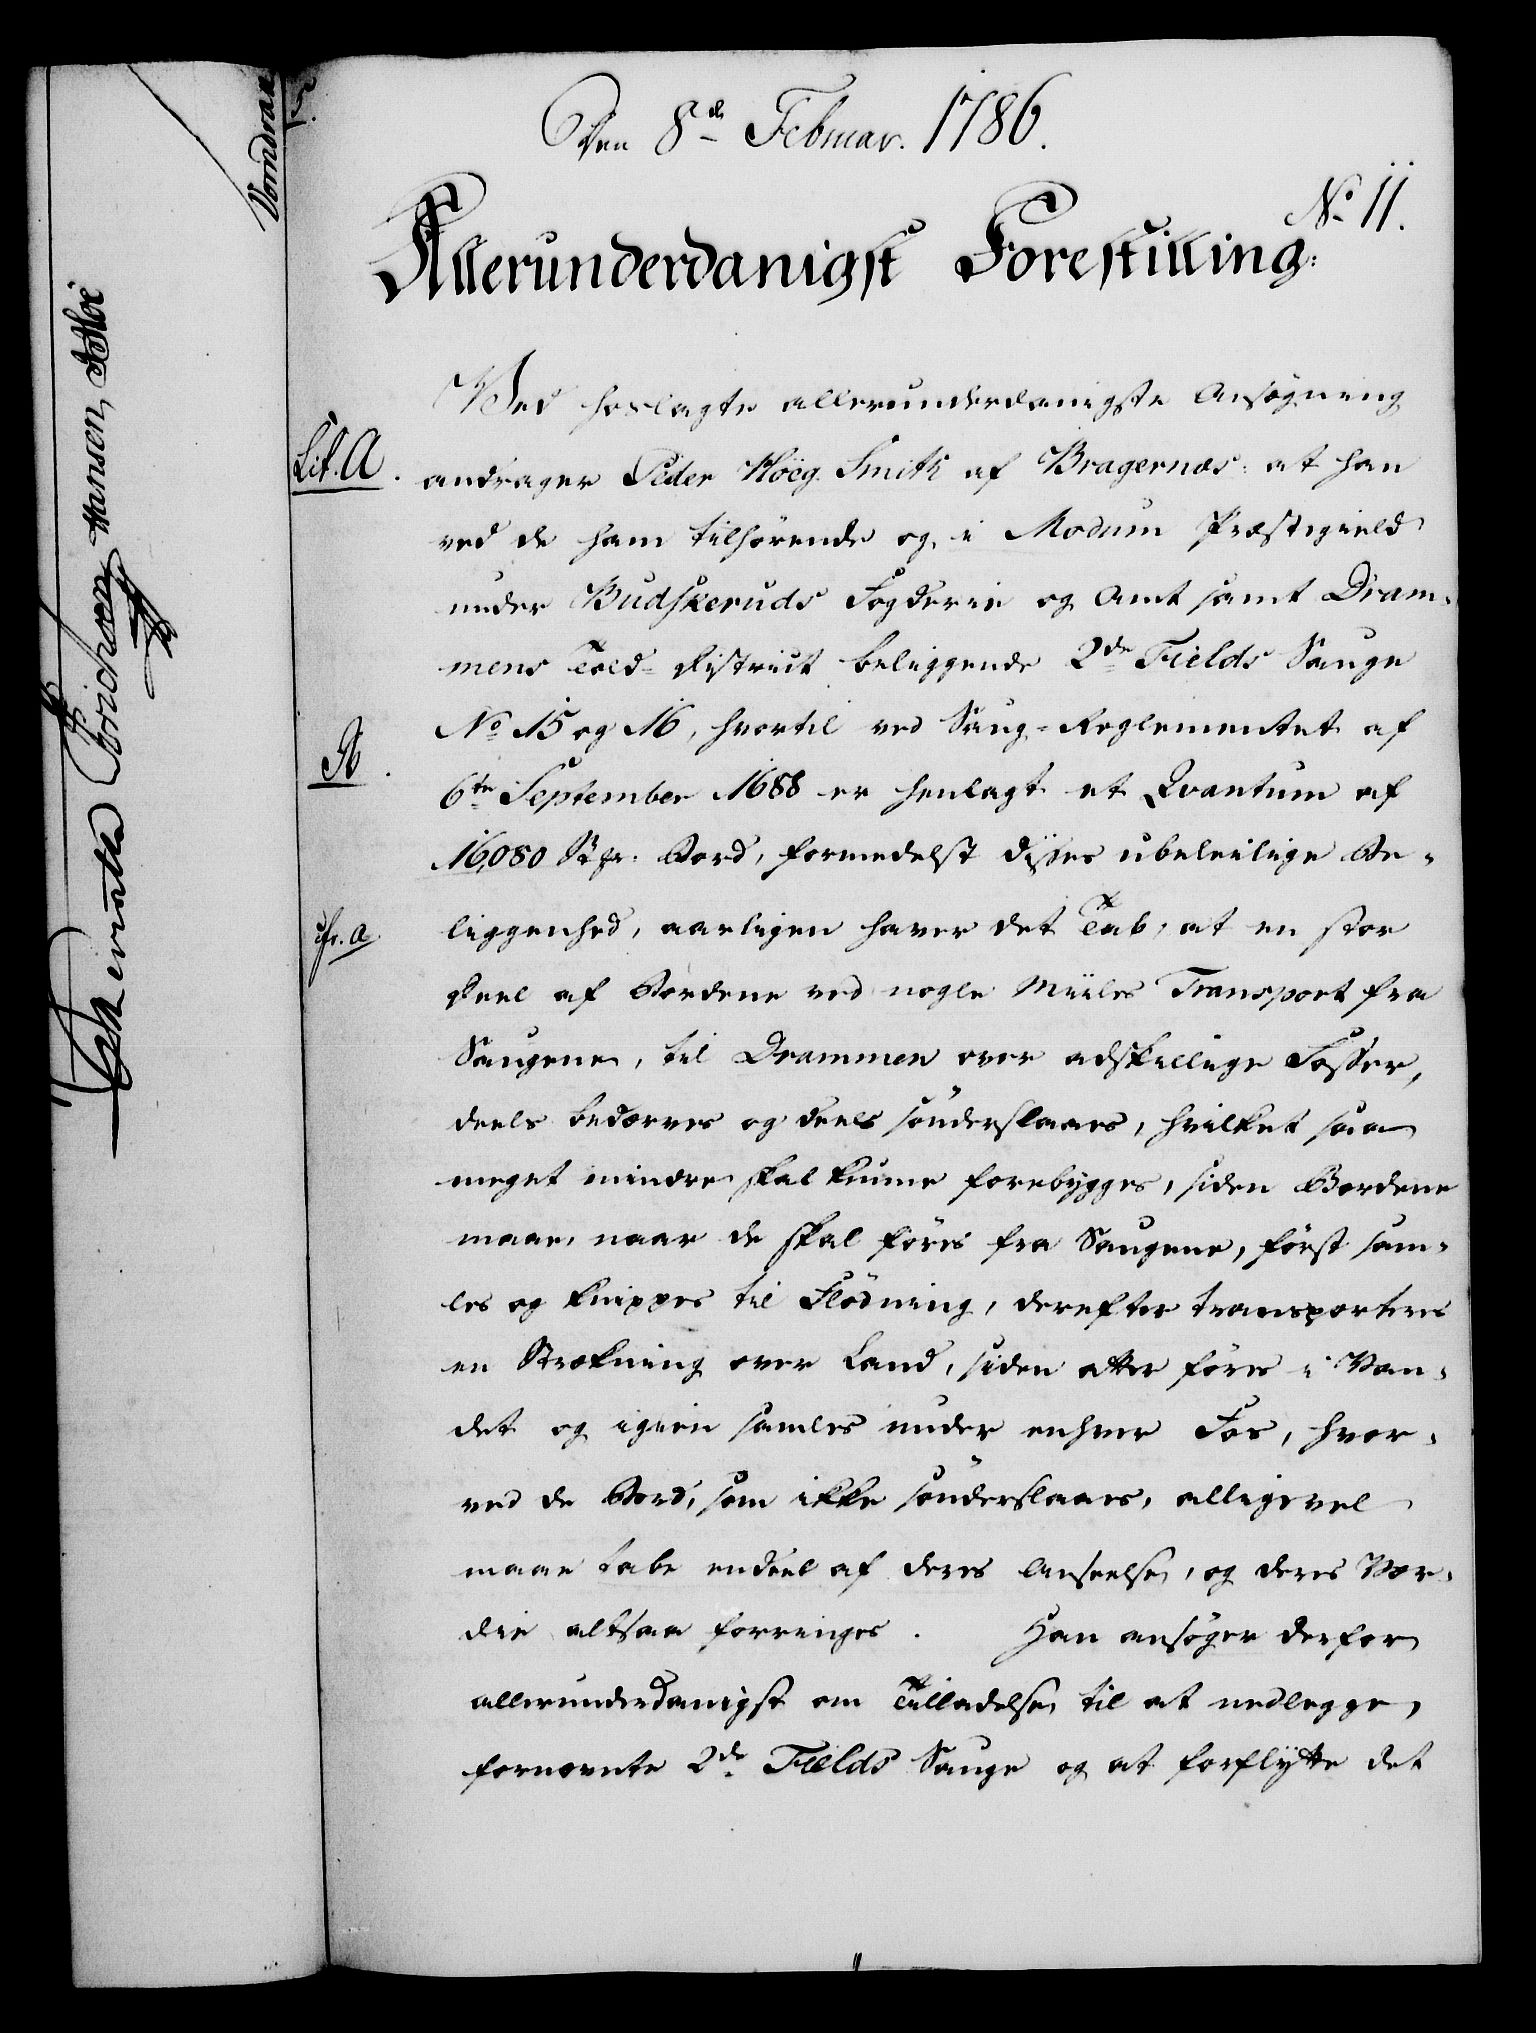 Den 8de Februar. 1786.
No 11.
Allerunderdanigst Forestilling:
Ved hoslagte allerunderdanigste Ansøgning
Lit. A. andrager Peder Höeg Smith af Bragernæs: at han
ved de ham tilhørende og i Modum Præstegield
under Budskeruds Fogderie og Amt samt Dram-
mens Told-District beliggende 2de Fields Sauge
No 15 og 16, hvortil ved Saug-Reglementet af
B. 6te September 1688 er henlagt et Qvantum af
16,080 Bord, formedelst disses ubeleilige Be-
liggenhed, aarligen haver det Tab, at en stor
Deel af Bordene ved nogle Miiles Transport fra
Saugene, til Drammen over adskillige Fosser,
deels bedærves og deels sönderslaaes, hvilket saa
meget mindre skal kunne forebygges, siden Bordene
maae, naar de skal föres fra Saugene, först sam-
les og knippes til Flödning, derefter transporteres
en Strækning over Land, siden atter föres i Van-
det og igien samles under enhver Fos, hvor-
ved de Bord, som ikke sönderslaaes, alligevel
maae tabe endeel af deres Anseelse, og deres Vær-
die altsaa forringes. Han ansöger derfor
allerunderdanigst om Tilladelse til at nedlegge
fornævnte 2de Fields Sauge og at forflytte det
Vorndran
Hansen,